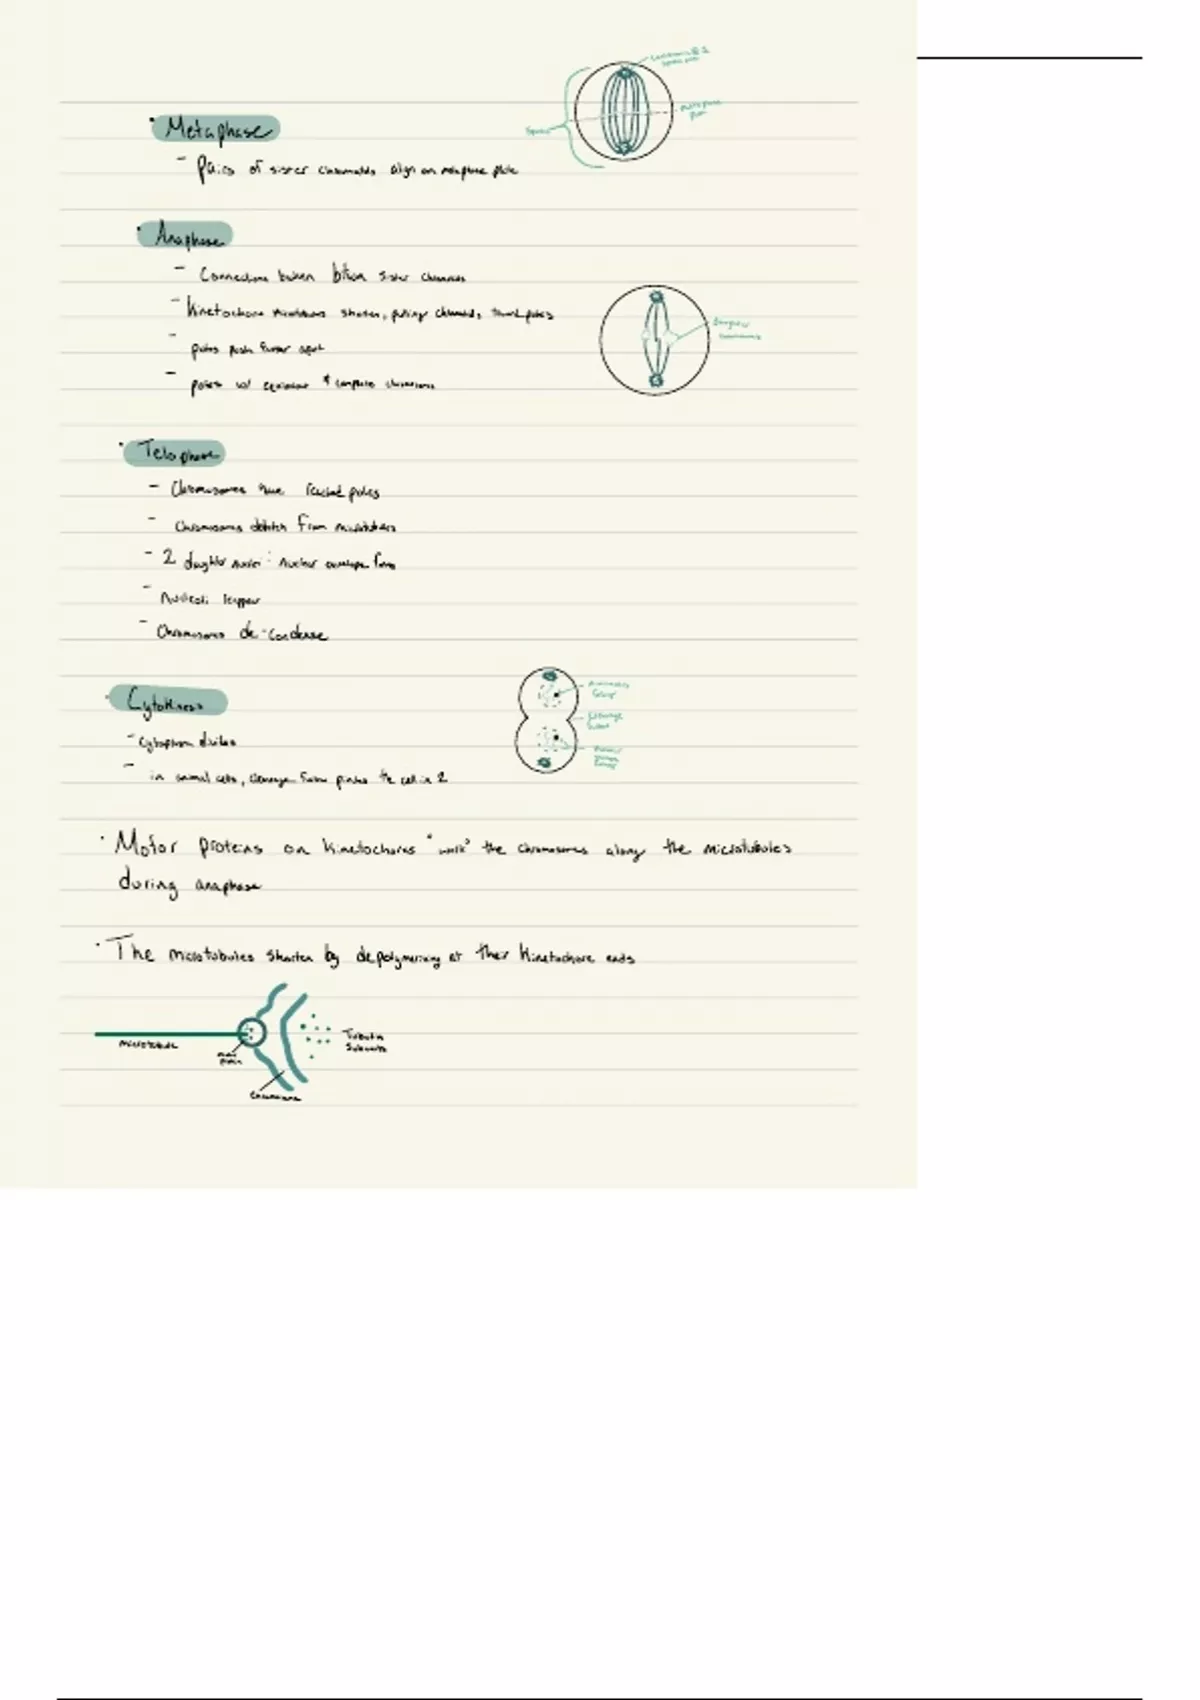 Metaphase
- Pairs of sister chromatids align on metaphase plate
Spindle
metaphase plate
Anaphase
- Connections broken btwn sister
- Kinetochore microtubules shorten, pulling toward poles
- poles push further apart
- poles w/ equivalent & complete chromosomes
Daughter chromosomes
Telophase
- Chromosomes have reached poles
- Chromosomes detach from microtubules
- 2 daughter nuclei: nuclear envelope form
- Nucleoli reappear
- Chromosomes de-condense
Cytokinesis
- Cytoplasm divides
- in animal cells, cleavage furrow pinches the cell in 2
Cleavage furrow
Motor proteins on kinetochores "walk" the chromosomes along the microtubules
during anaphase
The microtubules shorten by depolymerizing at their kinetochore ends
microtubule
motor protein
Chromosome
Tubulin
Subunits